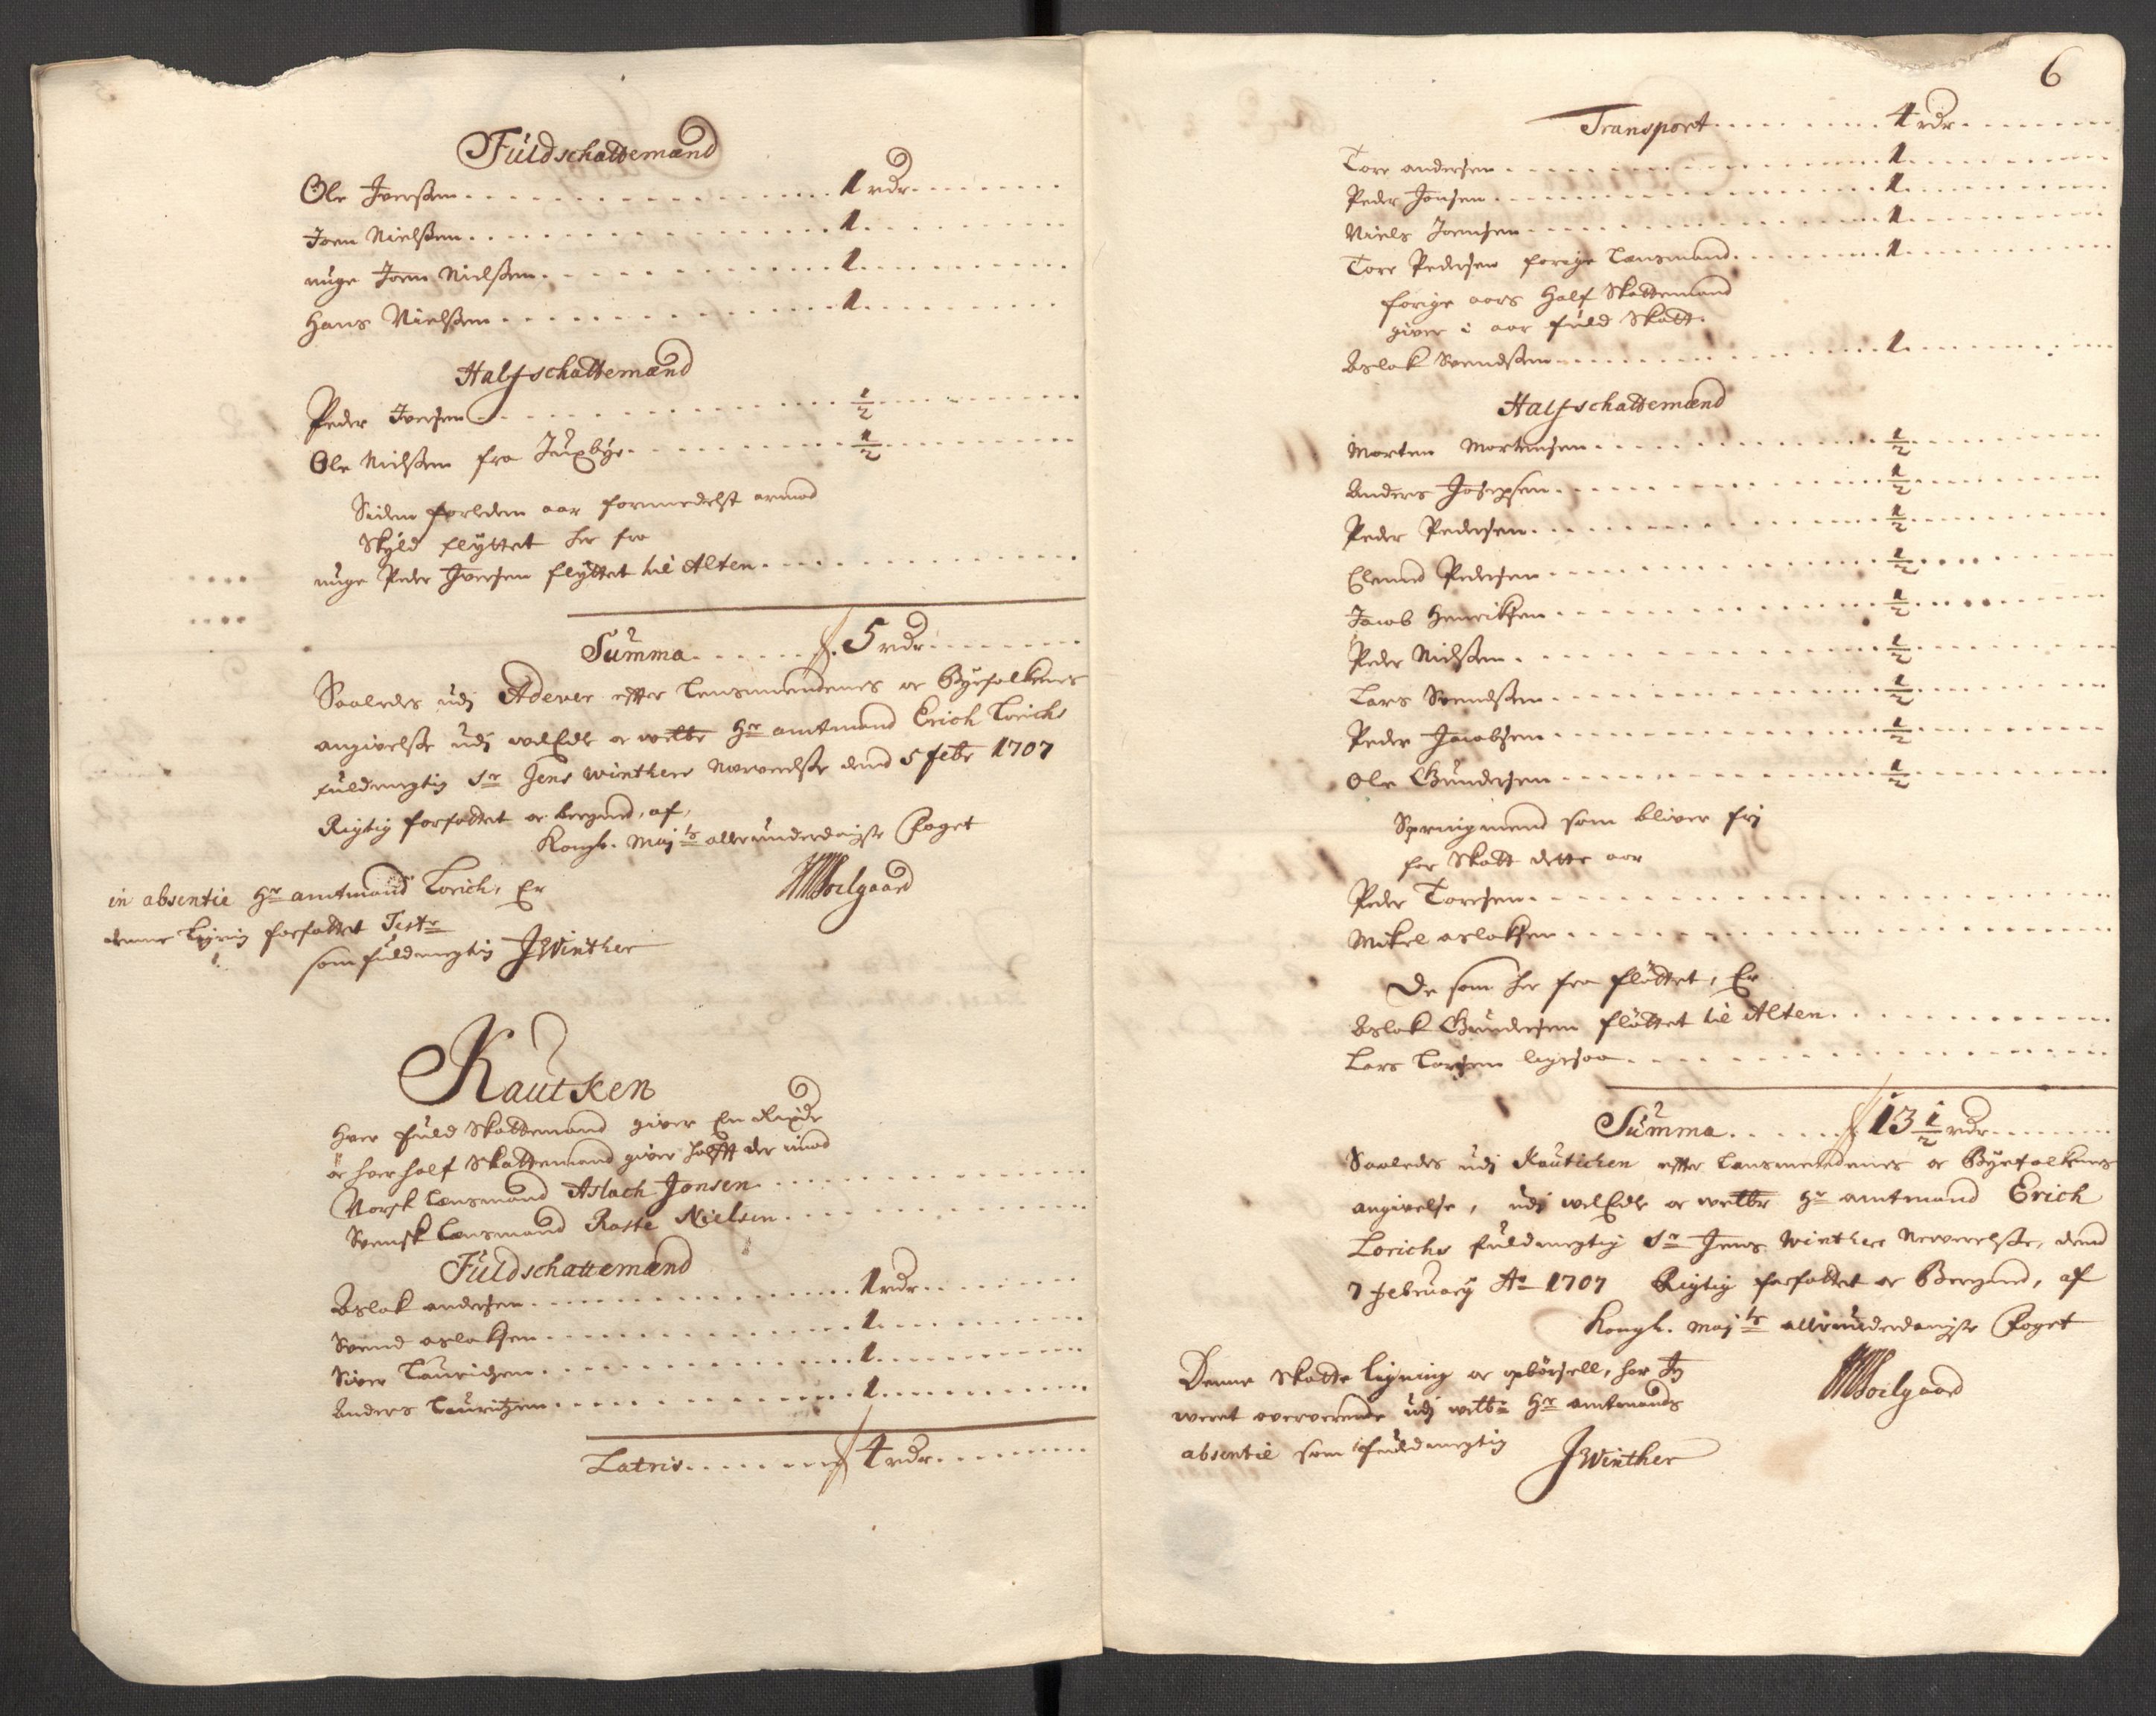 Fuldschattemænd
Ole Iverssen 1 rdr
Joen Nielssen 1
unge Joen Nielssen 1
Hans Nielssen 1
Halfschattemænd
Peder Iversen ½
Ole Nielssen fra ½
Siden forleden aar formedelst armod
Skyld flyttet her fra
unge Peder Iversen flyttet til Alten
Summa 5 rdr
Saaledes udj Adever efter Lensmendenes oc Byefolkenes
angivelsse udj velEdle oc welbr Hr amtmand Erich Lorichs
fuldmegtig Sr Jens Winthers Nerverelsse dend 5 febr 1707
Rigtig forfattet oc beregned, af,
Kongl. Maj ts allerunderdanigste Foget
Soelgaard
in absentie Hr amtmand Lorich, Er
denne ligning forfattet Test
som fuldmegtig JWinther
Kautken
Hver fuld Skattemand giver En Rixdr
oc hver half Skattemand giver helfft der imod
Norsk Lensmand Aslach Jonsen
Svensk Lensmand Raste Nielsen
Fuldschattemænd
Aslak andersen 1 rdr
Svend aslaksen 1
Siver Lauritzen 1
Anders Lauritzen 1
Latris 4 rdr
6
Transport 4 rdr
Tore andersen 1
Peder Jonsen 1
Niels Joensen 1
Tore Pedersen forige Lensmand 1
forige aars Half Skattemand
giver i aar fuld Skatt.
Aslak Svendssen 1
Halfschattemænd
Morten Mortensen ½
Anders Josepsen ½
Peder Pedersen ½
Clemed Pedersen ½
Jacob Henriksen ½
Peder Nielssen ½
Lars Svendssen ½
Peder Jacobsen ½
Ole Gundersen ½
Springmend som bliver frj
for Skatt dette aar
Peder Toresen
Mikel aslaksen
De som her fra flöttet, Er
Aslak Gundersen flöttet til Alten
Lars Larsen ligesaa
Summa 13 ½ rdr
Saaledes udj Kautichen efter Lensmendenes oc Byefolkenes
angivelse, udj velEdle oc welbr Hr amtmand Erich
Lorichs fuldmegtig Sr Jens Winthers Nerverelsse, dend
7 february Ao 1707 Rigtig forfattet oc Beregned, af
Kongl. Maj ts allerunderdanigste Foget
Soelgaard
Denne Skatte ligning oc opbörsell, har Jeg
weret oververende udj welbr Hr amtmands
absentie som fuldmegtig
JWinther